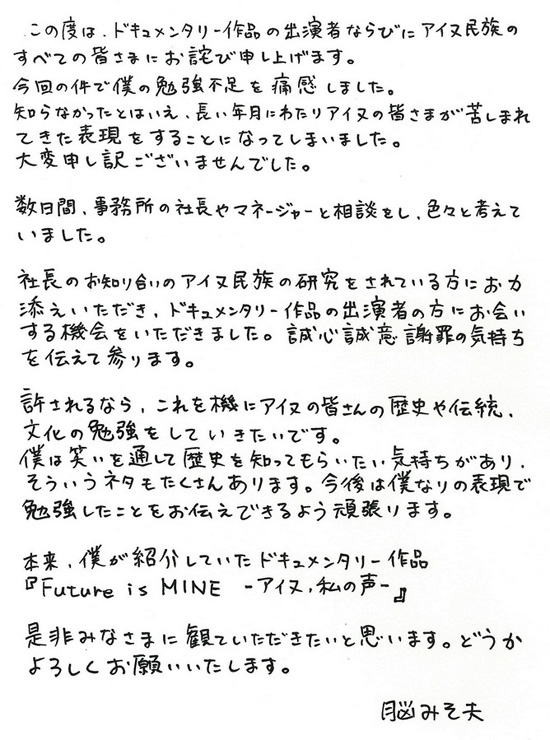 この度は、ドキュメンタリー作品の出演者ならびにアイヌ民族の
すべての皆さまにお詫び申し上げます。
今回の件で僕の勉強不足を痛感しました。
知らなかったとはいえ、長い年月にわたりアイヌの皆さまが苦しまれ
てきた表現をすることになってしまいました。
大変申し訳ございませんでした。
数日間、事務所の社長やマネージャーと相談をし、色々と考えて
いました。
社長のお知り合いのアイヌ民族の研究をされている方にお力
添えいただき、ドキュメンタリー作品の出演者の方にお会い
する機会をいただきました。誠心誠意謝罪の気持ち
を伝えて参ります。
許されるなら、これを機にアイヌの皆さんの歴史や伝統、
文化の勉強をしていきたいです。
僕は笑いを通して歴史を知ってもらいたい気持ちがあり、
そういうネタもたくさんあります。今後は僕なりの表現で
勉強したことをお伝えできるよう頑張ります。
本来、僕が紹介していたドキュメンタリー作品
『Future is MINE -アイヌ,私の声-』
是非みなさまに観ていただきたいと思います。どうか
よろしくお願いいたします。
脳みそ夫